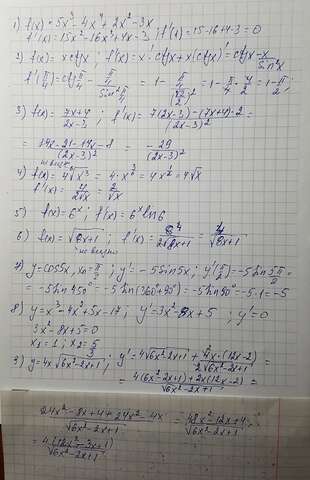 1) f(x) = 5x³ - 4x⁴ + 2x² - 3x
f'(x) = 15x² - 16x³ + 4x - 3 ; f'(1) = 15 - 16 + 4 - 3 = 0
2) f(x) = x ctgx ; f'(x) = x' ctgx + x(ctgx)' = ctgx - x/sin²x
f'(π/4) = ctg π/4 - (π/4)/(sin² π/4) = 1 - (π/4)/(√2/2)² = 1 - π/4 · 4/2 = 1 - π/2 ;
3) f(x) = (7x+4)/(2x-3) ; f'(x) = (7(2x-3) - (7x+4)·2)/(2x-3)² =
= (14x - 21 - 14x - 8)/(2x-3)² = -29/(2x-3)²
не
4) f(x) = 4 √x³ = 4 · x = 4x = 4√x
f'(x) = 4/(2√x) = 2/√x
5) f(x) = 6ˣ ; f'(x) = 6ˣ ln6
6) f(x) = √(8x+1) ; f'(x) = 8/(2√(8x+1)) = 4/√(8x+1)
не
7) y = cos5x, x₀ = π/2 ; y' = -5sin5x ; y'(π/2) = -5sin 5π/2 =
= -5sin 450° = -5sin(360°+90°) = -5sin90° = -5·1 = -5
8) y = x³ - 4x² + 5x - 17 ; y' = 3x² - 8x + 5 ; y' = 0
3x² - 8x + 5 = 0
x₁ = 1 ; x₂ = 5/3
9) y = 4x √(6x²-2x+1) ; y' = 4√(6x²-2x+1) + (4x·(12x-2))/(2√(6x²-2x+1)) =
= (4(6x²-2x+1) + 2x(12x-2))/√(6x²-2x+1) =
(24x² - 8x + 4 + 24x² - 4x)/√(6x²-2x+1) = (48x² - 12x + 4)/√(6x²-2x+1)
= 4(12x² - 3x + 1)/√(6x²-2x+1)